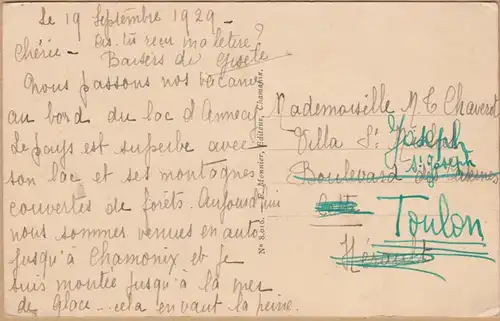 Le 19 Septembre 1929 -
As-tu reçu ma lettre ?
Chérie - Baisers de Gisèle
Nous passons nos vacances
au bord du lac d'Annecy
Le pays est superbe avec
son lac et ses montagnes
couvertes de forêts. Aujourd'hui
nous sommes venues en auto
jusqu'à Chamonix et je
suis montée jusqu'à la mer
de Glace... cela en vaut la peine.
E. Monnier, Editeur, Chamonix.
Mademoiselle M. C. Chaverot
Villa St Joseph
St Joseph
Boulevard des
Cette
Toulon
Hérault